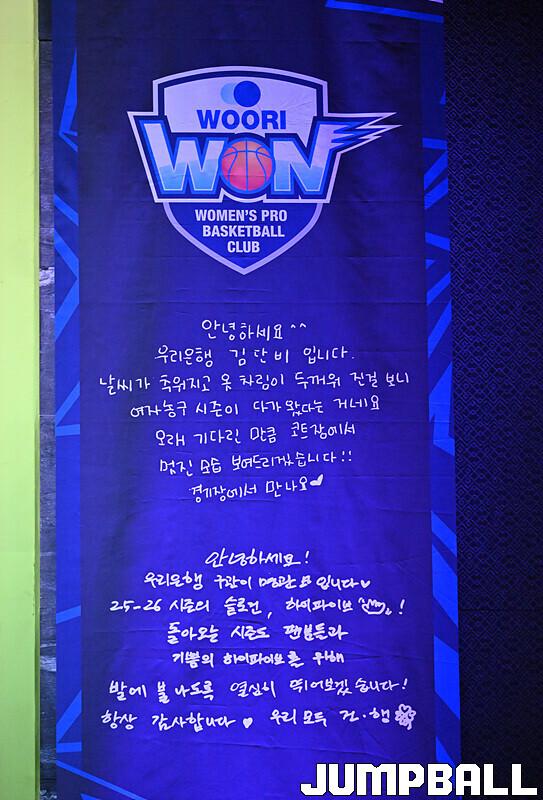 WOORI
WON
WOMEN'S PRO
BASKETBALL
CLUB
안녕하세요 ^^
우리은행 김단비 입니다.
날씨가 추워지고 옷 차림이 두꺼워 진걸 보니
여자농구 시즌이 다가 왔다는 거네요
오래 기다린 만큼 코트장에서
멋진 모습 보여드리겠습니다!!
경기장에서 만나요♥
안녕하세요!
우리은행 구관이 명관 입니다♥
25-26 시즌의 슬로건, 하이파이브 !
돌아오는 시즌도 팬분들과
기쁨의 하이파이브를 위해
발에 불나도록 열심히 뛰어보겠습니다!
항상 감사합니다 ♥ 우리 모두 건·행
JUMPBALL